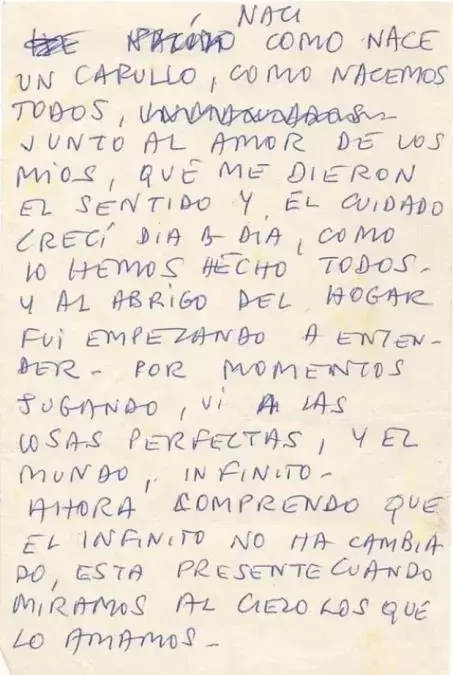 NACI
HE NACIDO COMO NACE
UN CAPULLO, COMO NACEMOS
TODOS,
JUNTO AL AMOR DE LOS
MIOS, QUE ME DIERON
EL SENTIDO Y EL CUIDADO
CRECÍ DIA A DIA, COMO
LO HEMOS HECHO TODOS-
Y AL ABRIGO DEL HOGAR
FUI EMPEZANDO A ENTEN-
DER- POR MOMENTOS
JUGANDO, VI A LAS
COSAS PERFECTAS, Y EL
MUNDO, INFINITO-
AHORA COMPRENDO QUE
EL INFINITO NO HA CAMBIA
DO, ESTA PRESENTE CUANDO
MIRAMOS AL CIELO LOS QUE
LO AMAMOS-